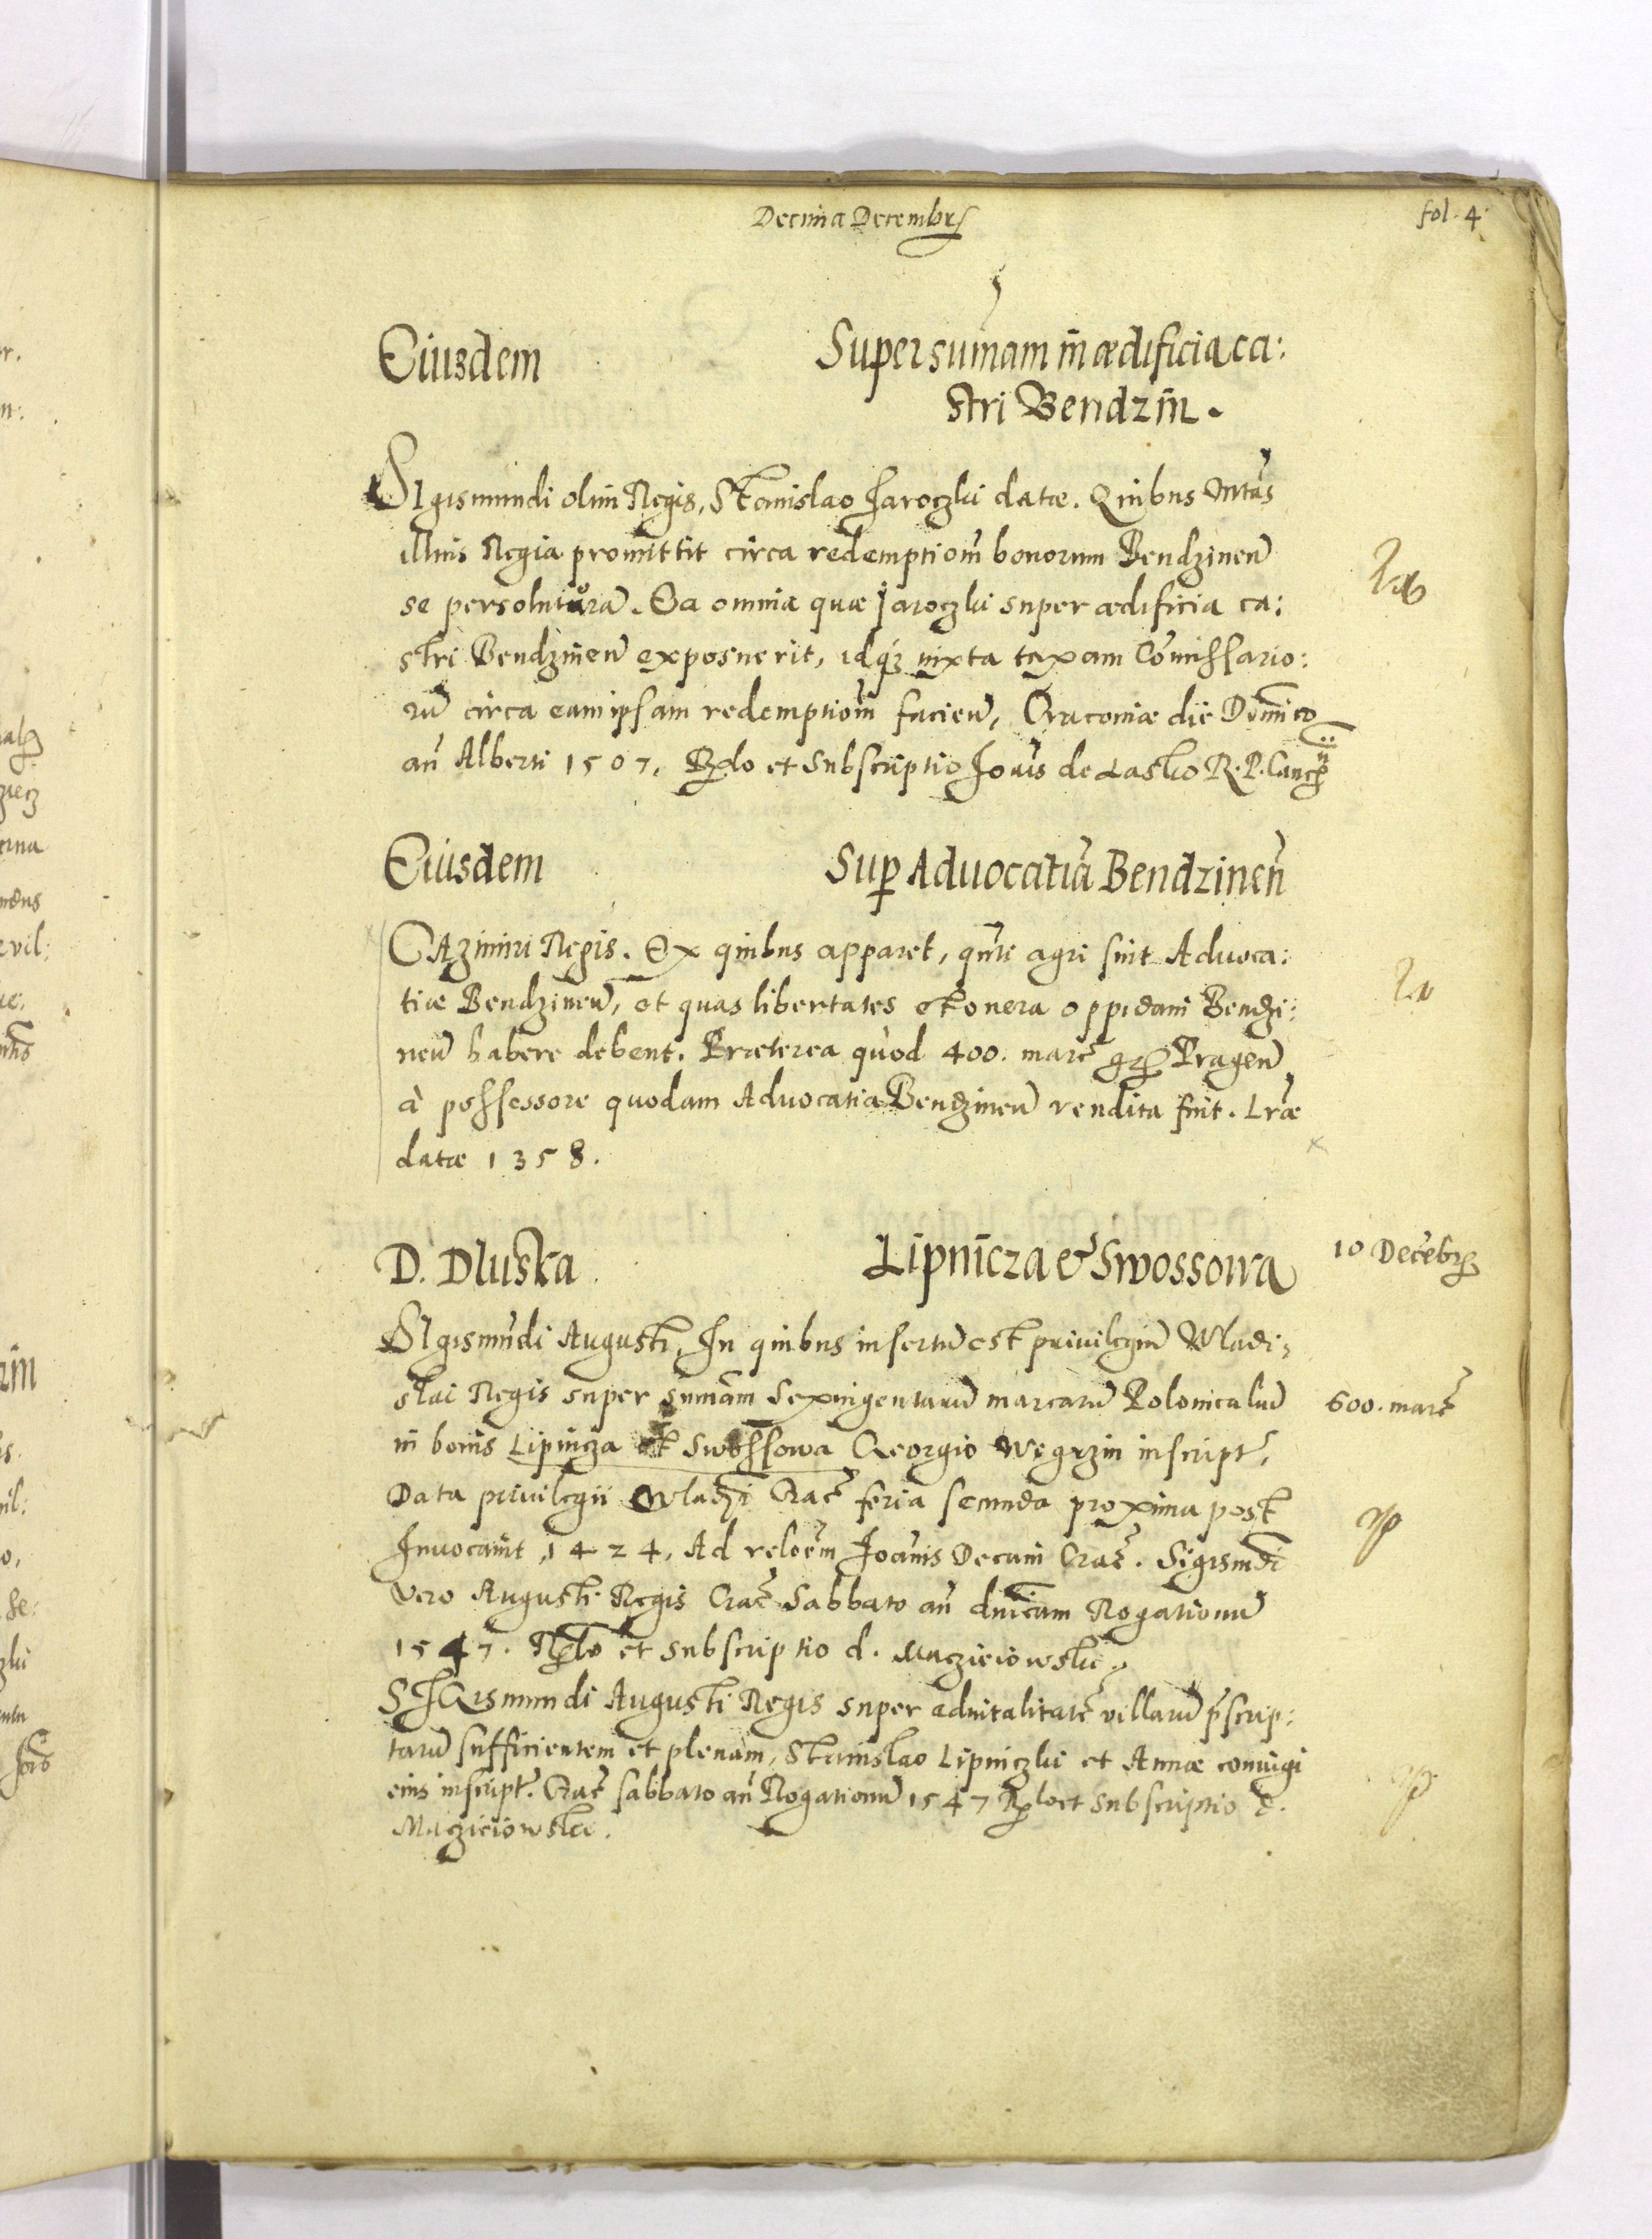 Decima Decembr
fol. 4.
Eiusdem
Super sum̄am in ædificia ca:
stri Bendzin.
SIgismundi olim Regis, Stanislao Jaroczki datæ. Quibus Mtās
illius Regia promittit circa redemptiom̄ bonorum Bendzinen̄
se persoluturā. Ea omnia quæ Jaroczki super ædificia ca:
stri Bendzinen̄ exposuerit, idqꝫ iuxta taxam Com̄issario:
rū circa eam ipsam redemptiom̄ facien̄, Cracouiæ die Dominico
an̄ Alberti 1507, Rℓo et Subscriptio Joānis de Lasko R. P. Canc
Eiusdem
Suꝑ Aduocatiā Bendzinen̄
CAzimiri Regis. Ex quibus apparet, qūti agri sint Aduoca:
tiæ Bendzinen̄, et quas libertates et onera oppidani Bendzi:
nen̄ habere debent. Præterea quod 400. marc̄ gr Pragen̄
à possessore quodam Aduocatia Bendzinen̄ vendita fuit. Lræ
datæ 1358.
D. Dluska
Lipnicza et Swossowa
10 Decēbr
SIgismūdi Augusti, In quibus insertū est priuilegiū Wladi:
slai Regis super sum̄am Sexingentarū marcarū Polonicaliū
600. marc̄
in bonis Lipnicza et Swossowa Georgio Wegrzin inscript̄,
Data priuilegii Wladzi Crac̄ feria secunda proxima post
Inuocauit 1424, Ad reloēm Joānis Decani Crac̄. Sigismdi
vero Augusti Regis Crac̄ Sabbato an̄ dnicam Rogationū
1547. Rℓo et subscriptio d. Macziciowski.
SIGismundi Augusti Regis super aduitalitatē villarū p̄scrip:
tarū sufficientem et plenam, Stanislao Lipniczki et Annæ coniugi
eius inscript̄. Crac̄ sabbato an̄ Rogationū 1547 Rℓo et Subscriptio d.
Macziciowski.